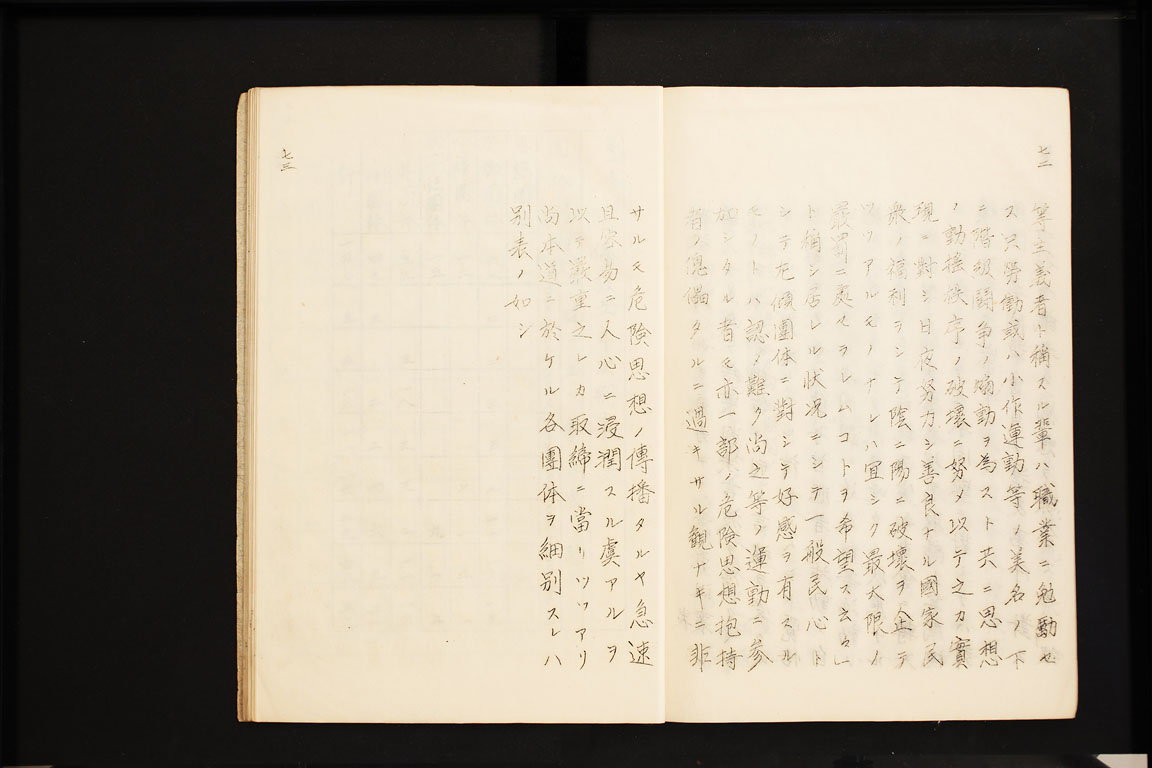 七二
等主義者ト稱スル輩ハ職業ニ勉勵セ
ス只勞働或ハ小作運動等ノ美名ノ下
ニ階級闘争ノ煽動ヲ為スト共ニ思想
ノ動揺秩序ノ破壊ニ努メ以テ之カ實
現ニ對シ日夜努力シ善良ナル國家民
衆ノ福利ヲシテ陰ニ陽ニ破壊ヲ企テ
ツツアルモノナレハ宜シク最大限ノ
嚴罰ニ處セラレムコトヲ希望ス云々」
ト稱シ居レル状况ニシテ一般民心ト
シテ左傾團体ニ對シテ好感ヲ有スル
モノトハ認ノ難ク尚之等ノ運動ニ参
加シタル者モ亦一部ノ危険思想抱持
者ノ傀儡タルニ過キサル観ナキニ非
七三
サルモ危険思想ノ傳播タルヤ急速
且容易ニ人心ニ浸潤スル虞アルヲ
以テ嚴重之レカ取締ニ當リツツアリ
尚本道ニ於ケル各團体ヲ細別スレハ
別表ノ如シ